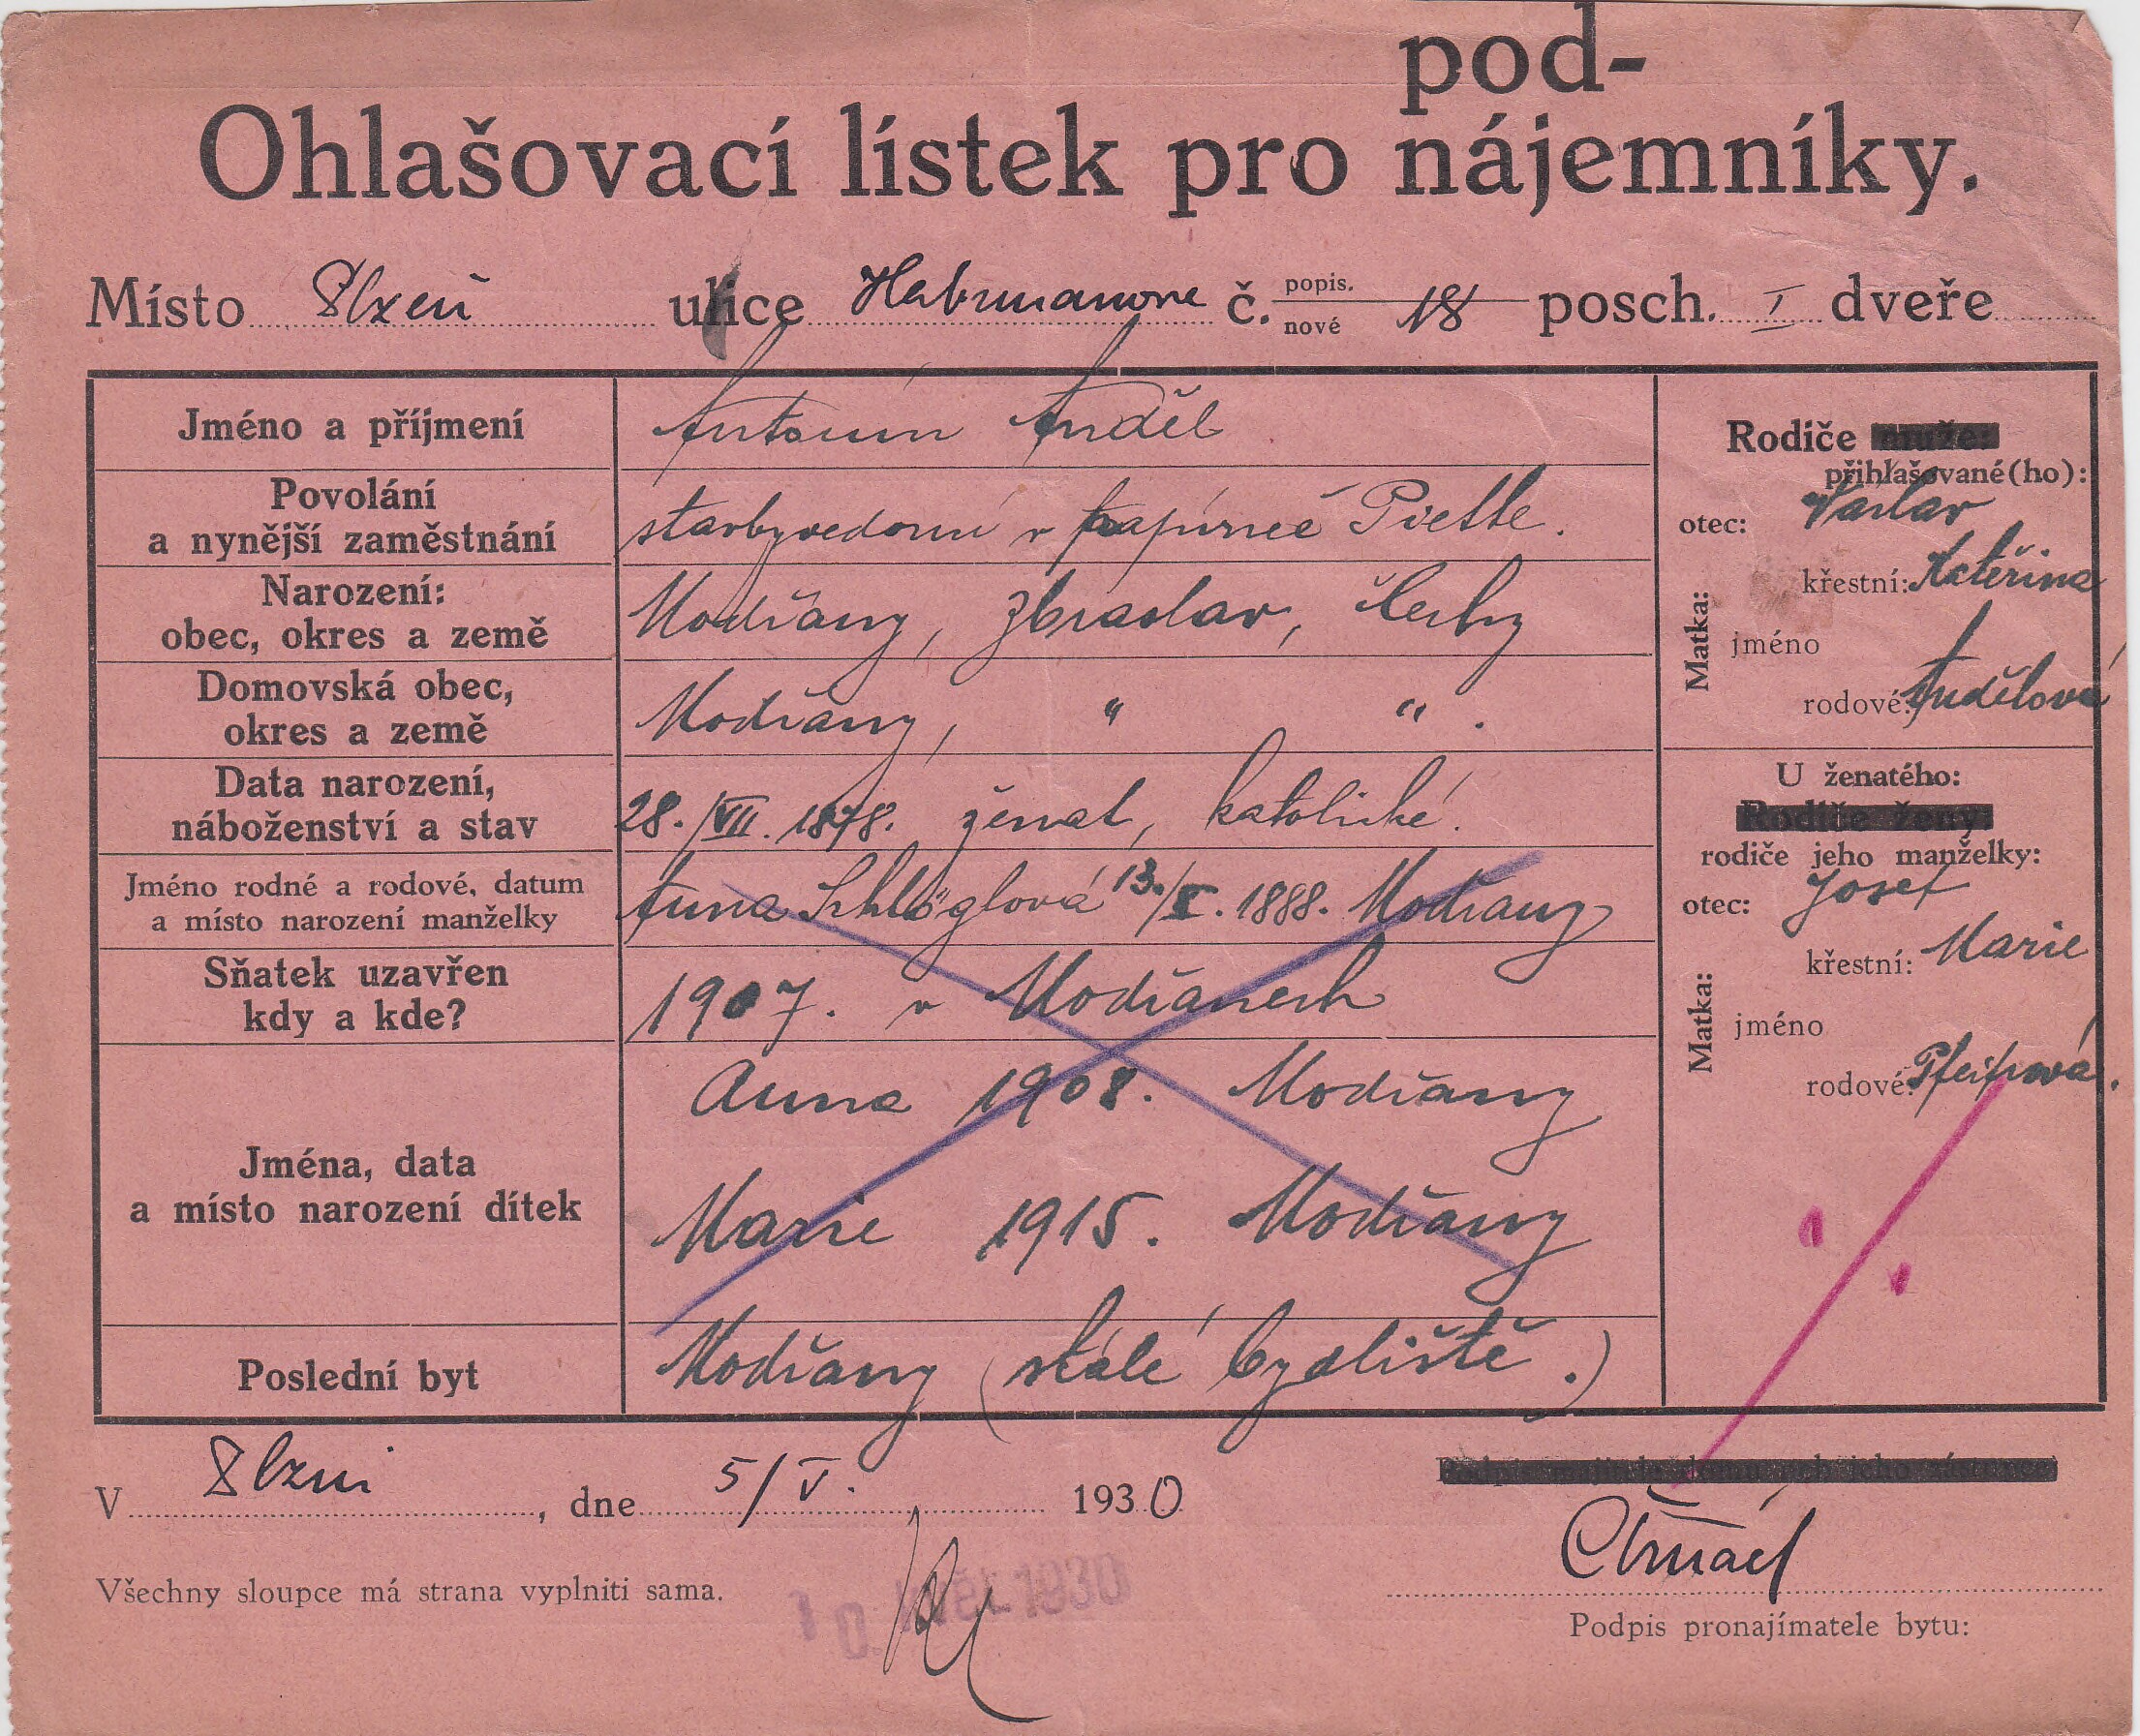 pod-
Ohlašovací lístek pro nájemníky.
Místo Plzeň ulice Habrmanova č. popis. nové 18 posch. I dveře
Jméno a příjmení
Antonín Anděl
Povolání
a nynější zaměstnání
stavbyvedoucí v papírně Piette.
Narození:
obec, okres a země
Modřany, Zbraslav, Čechy
Domovská obec,
okres a země
Modřany, " " .
Data narození,
náboženství a stav
28./VII. 1878. ženat, katolické.
Jméno rodné a rodové, datum
a místo narození manželky
Anna Schlöglová 13./X. 1888. Modřany
Sňatek uzavřen
kdy a kde?
1907. v Modřanech
Jména, data
a místo narození dítek
Anna 1908. Modřany
Marie 1915. Modřany
Poslední byt
Modřany (stálé bydliště.)
Rodiče muže:
přihlašované(ho):
otec: Václav
Matka:
křestní: Kateřina
jméno
rodové: Andělová
U ženatého:
Rodiče ženy:
rodiče jeho manželky:
otec: Josef
Matka:
křestní: Marie
jméno
rodové:
V Plzni, dne 5/V. 1930
Všechny sloupce má strana vyplniti sama.
10. KVĚT. 1930
Podpis pronajímatele bytu: